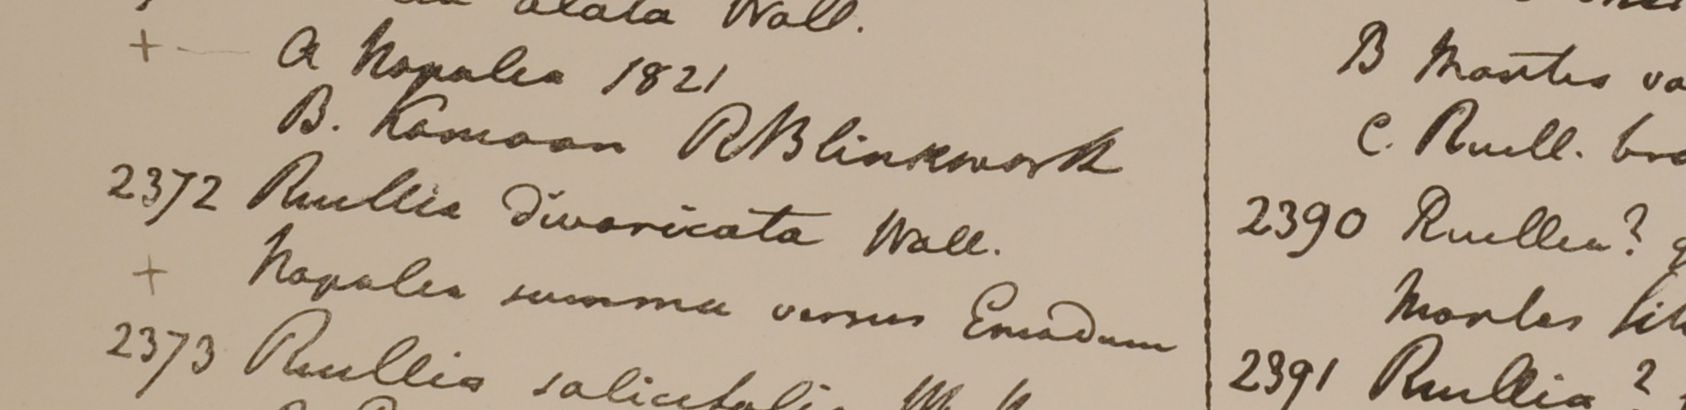 alata Wall.
+ — A Napalia 1821
B. Kamaon RBlinkwork
2372 Ruellia divaricata Wall.
+ Napalia summa versus Emodum
2373 Ruellia
B Montes
C. Ruell.
2390 Ruellia?
Montes
2391 Ruellia ?